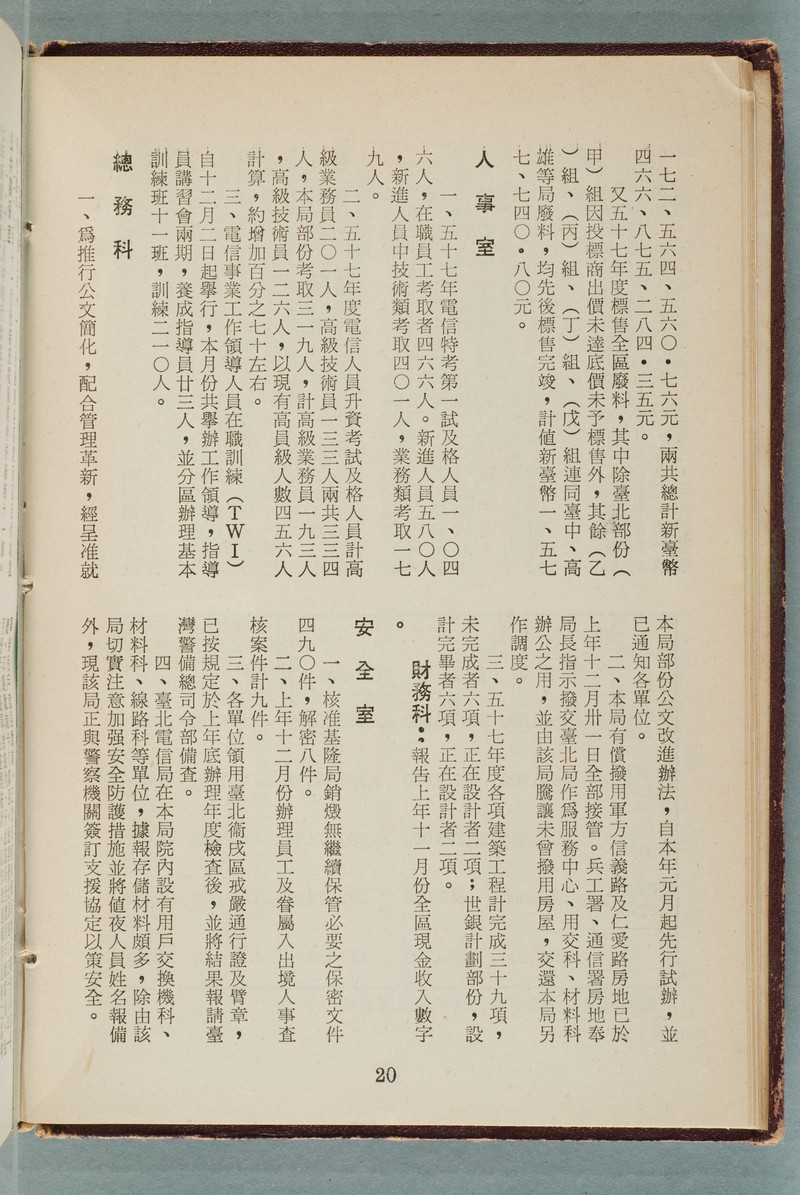 一七二、五六四、五六〇・七六元，兩共總計新臺幣
四六六、八七五、二八四・三五元。
又五十七年度標售全區廢料，其中除臺北部份（
甲）組因投標商出價未達底價未予標售外，其餘（乙
）組、（丙）組、（丁）組、（戊）組連同臺中、高
雄等局廢料，均先後標售完竣，計值新臺幣一、五七
七、七四〇・八〇元。
人事室
一、五十七年電信特考第一試及格人員一、〇四
六人，在職員工考取者四六六人。新進人員五八〇人
，新進人員中技術類考取四〇一人，業務類考取一七
九人。
二、五十七年度電信人員升資考試及格人員計高
級業務員二〇一人，高級技術員一三三人兩共三三四
人，本局部份考取三一九人，計高級業務員一九三人
，高級技術員一二六人，以現有高員級人數四五六人
計算，約增加百分之七十左右。
三、電信事業工作領導人員在職訓練（ＴＷＩ）
自十二月二日起舉行，本月份共舉辦工作領導，指導
員講習會兩期，養成指導員廿三人，並分區辦理基本
訓練班十一班，訓練二一〇人。
總務科
一、爲推行公文簡化，配合管理革新，經呈准就
本局部份公文改進辦法，自本年元月起先行試辦，並
已通知各單位。
二、本局有償撥用軍方信義路及仁愛路房地已於
上年十二月卅一日全部接管。兵工署、通信署房地奉
局長指示撥交臺北局作爲服務中心、用交科、材料科
辦公之用，並由該局騰讓未曾撥用房屋，交還本局另
作調度。
三、五十七年度各項建築工程計完成三十九項，
未完成者六項，正在設計者二項；世銀計劃部份，設
計完畢者六項，正在設計者二項。
財務科：報告上年十一月份全區現金收入數字
。
安全室
一、核准基隆局銷燬無繼續保管必要之保密文件
四九〇件，解密八件。
二、上年十二月份辦理員工及眷屬入出境人事査
核案件計九件。
三、各單位領用臺北衞戍區戒嚴通行證及臂章，
已按規定於上年底辦理年度檢查後，並將結果報請臺
灣警備總司令部備查。
四、臺北電信局在本局院內設有用戶交換機科、
材料科、線路科等單位，據報存儲材料頗多，除由該
局切實注意加强安全防護措施並將值夜人員姓名報備
外，現該局正與警察機關簽訂支援協定以策安全。
20